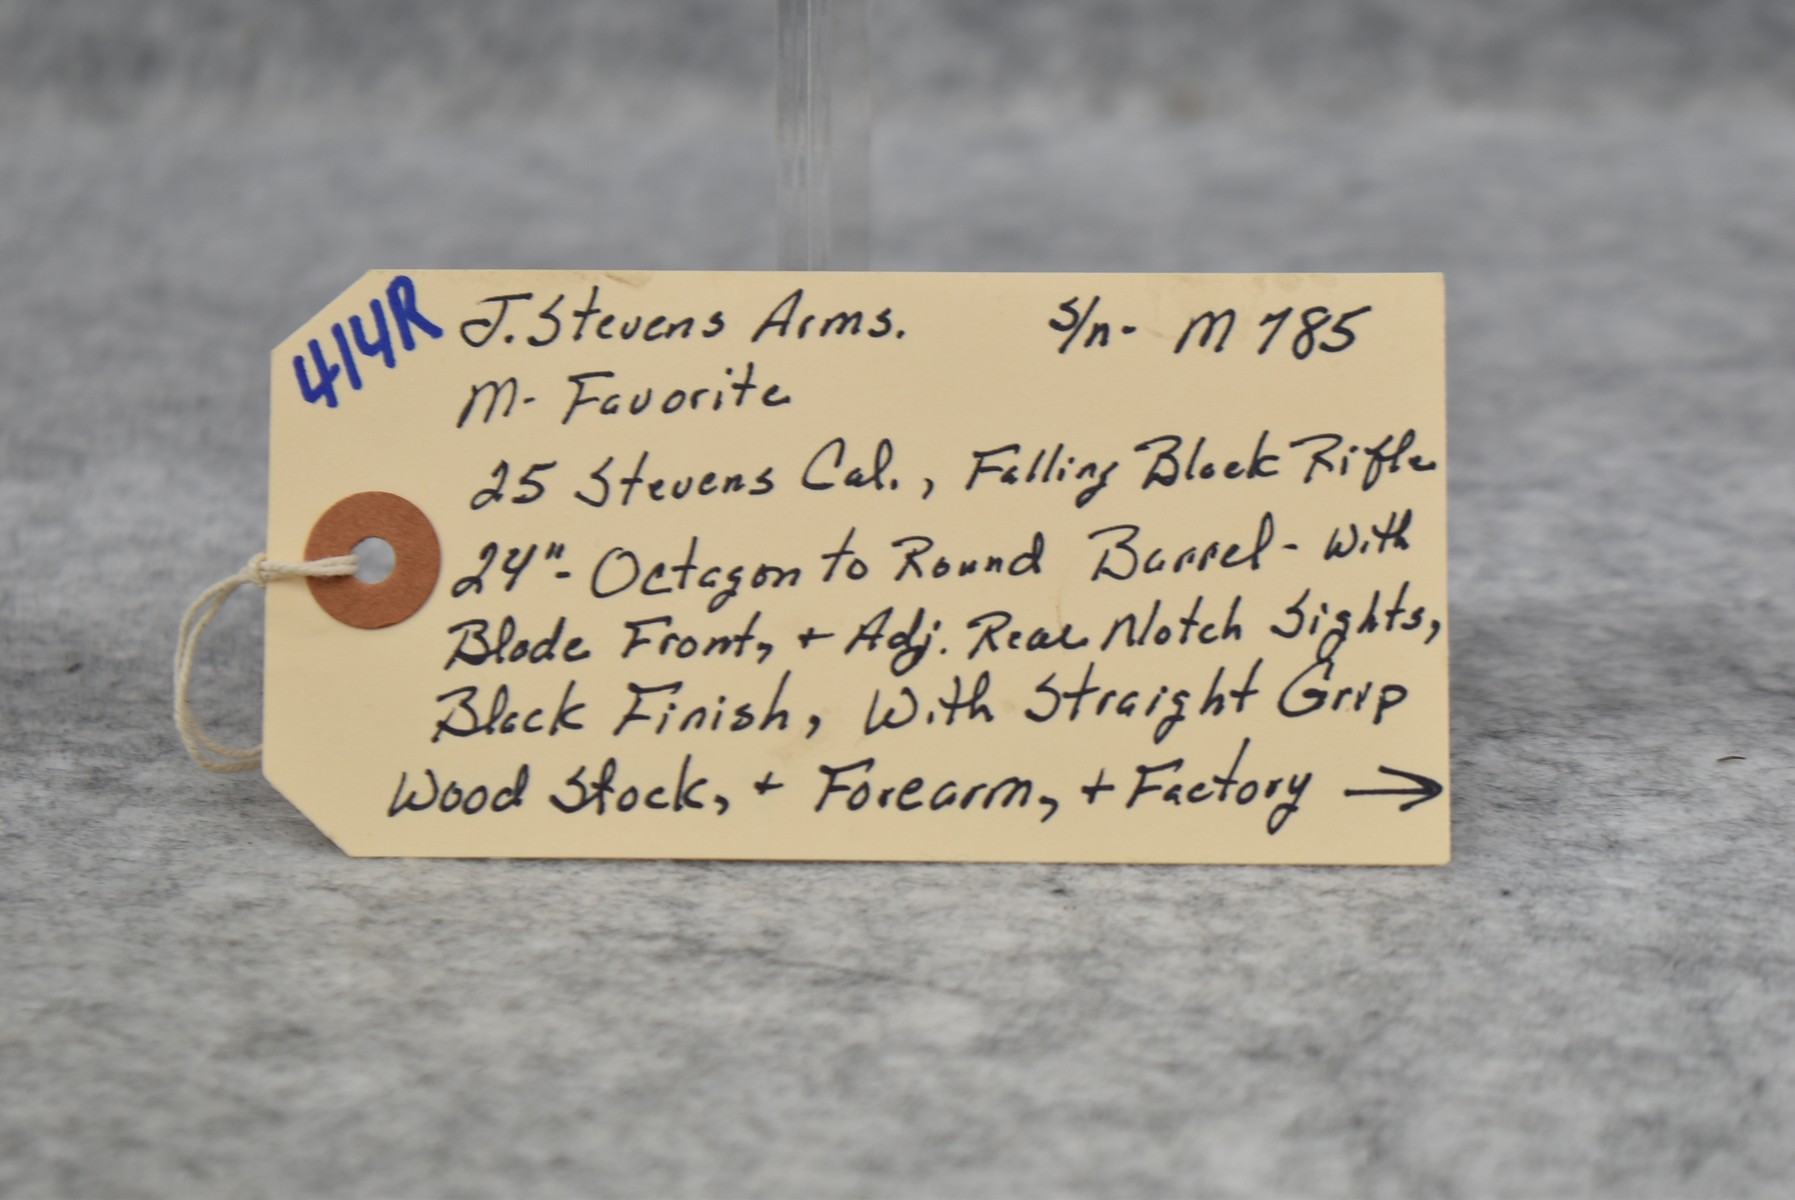 414R
J. Stevens Arms. S/n- M785
M- Favorite
25 Stevens Cal., Falling Block Rifle
24"- Octagon to Round Barrel - With
Blade Front, + Adj. Rear Notch Sights,
Black Finish, With Straight Grip
Wood Stock, + Forearm, + Factory →